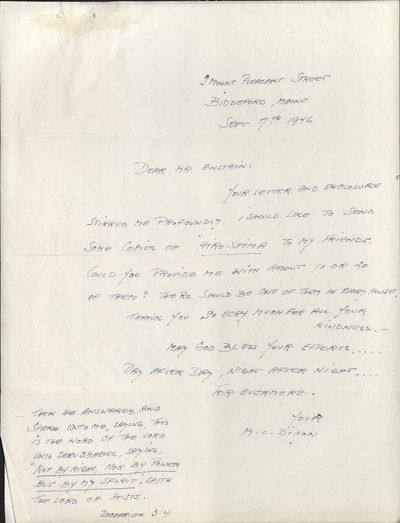 9 Mount Pleasant Street
Biddeford, Maine
Sept 7th 1946
Dear Mr. Enstein:
Your letter and enclosure
stirred me profoundly. I should like to send
some copies of "Hiroshima to my friends.
Could you provide me with about 10 or 20
of them? There should be one of them in every house.
Thank you so very much for all your
kindness.—
May God bless your efforts.....
Day after day, night after night,...
for evermore.
Your,
M. C. Dixon
Then he answered and
spake unto me, saying, this
is the word of the Lord
unto Zerubbabel, saying,
"Not by might, nor by power
but by my spirit, saith
the Lord of Hosts.
3.4